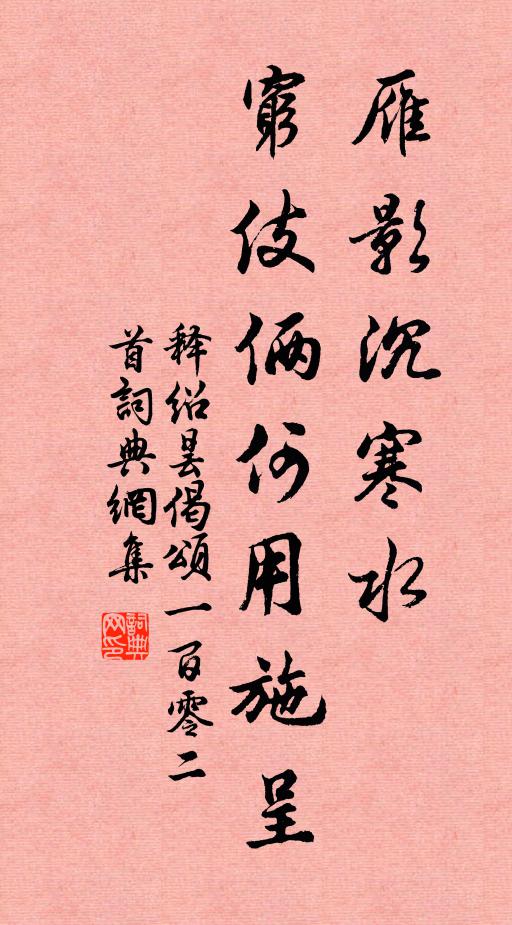 雁影沉寒水
窮伎倆何用施呈
释紹曇偈頌一百零二
首詞典網集
詞典
网印